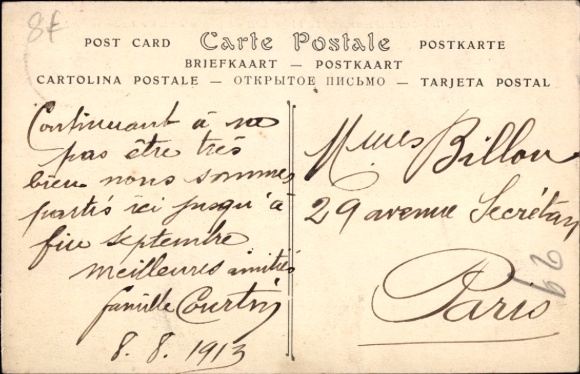 8€
POST CARD Carte Postale POSTKARTE
BRIEFKAART — POSTKAART
CARTOLINA POSTALE — ОТКРЫТОЕ ПИСЬМО — TARJETA POSTAL
Continuant à ne
pas être très
bien nous sommes
partis ici jusqu'à
fin septembre
meilleures amitiés
famille Courtin
8.8.1913
Mmes Billon
29 avenue Secrétan
Paris
29